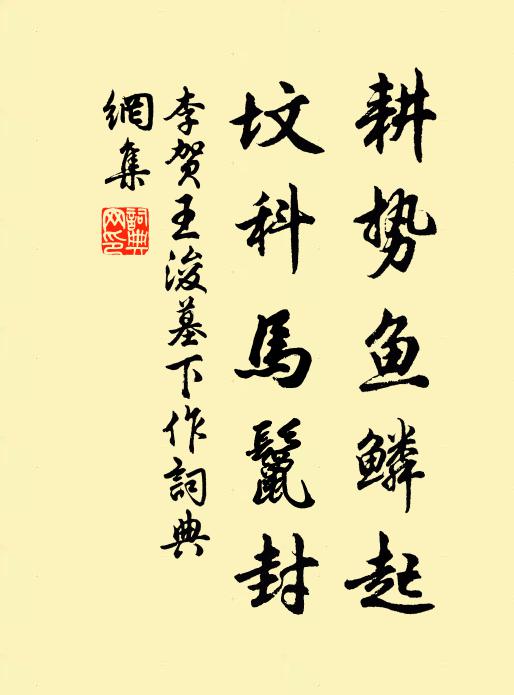 耕势鱼鳞起
坟科馬鬣封
李贺王浚墓下作詞典
網集
詞典
网印